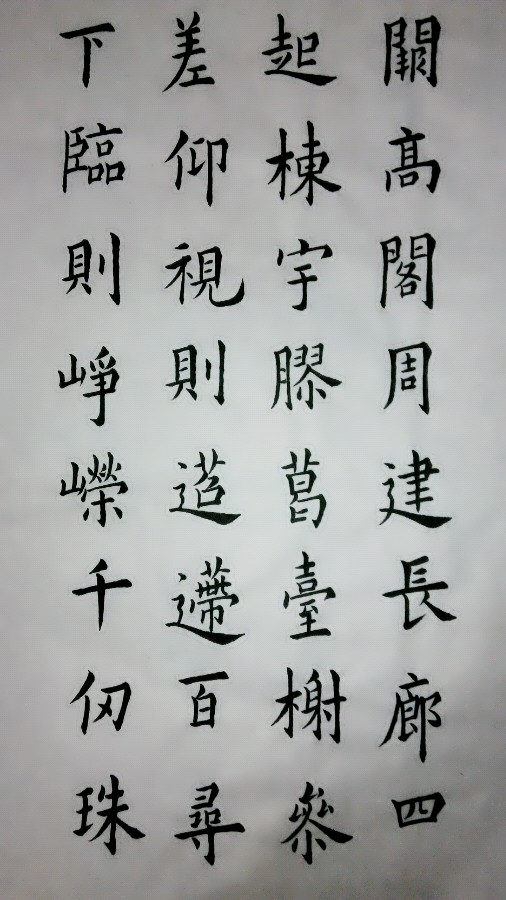 闕高閣周建長廊四
起棟宇膠葛臺榭參
差仰視則迢遰百尋
下臨則崢嶸千仞珠